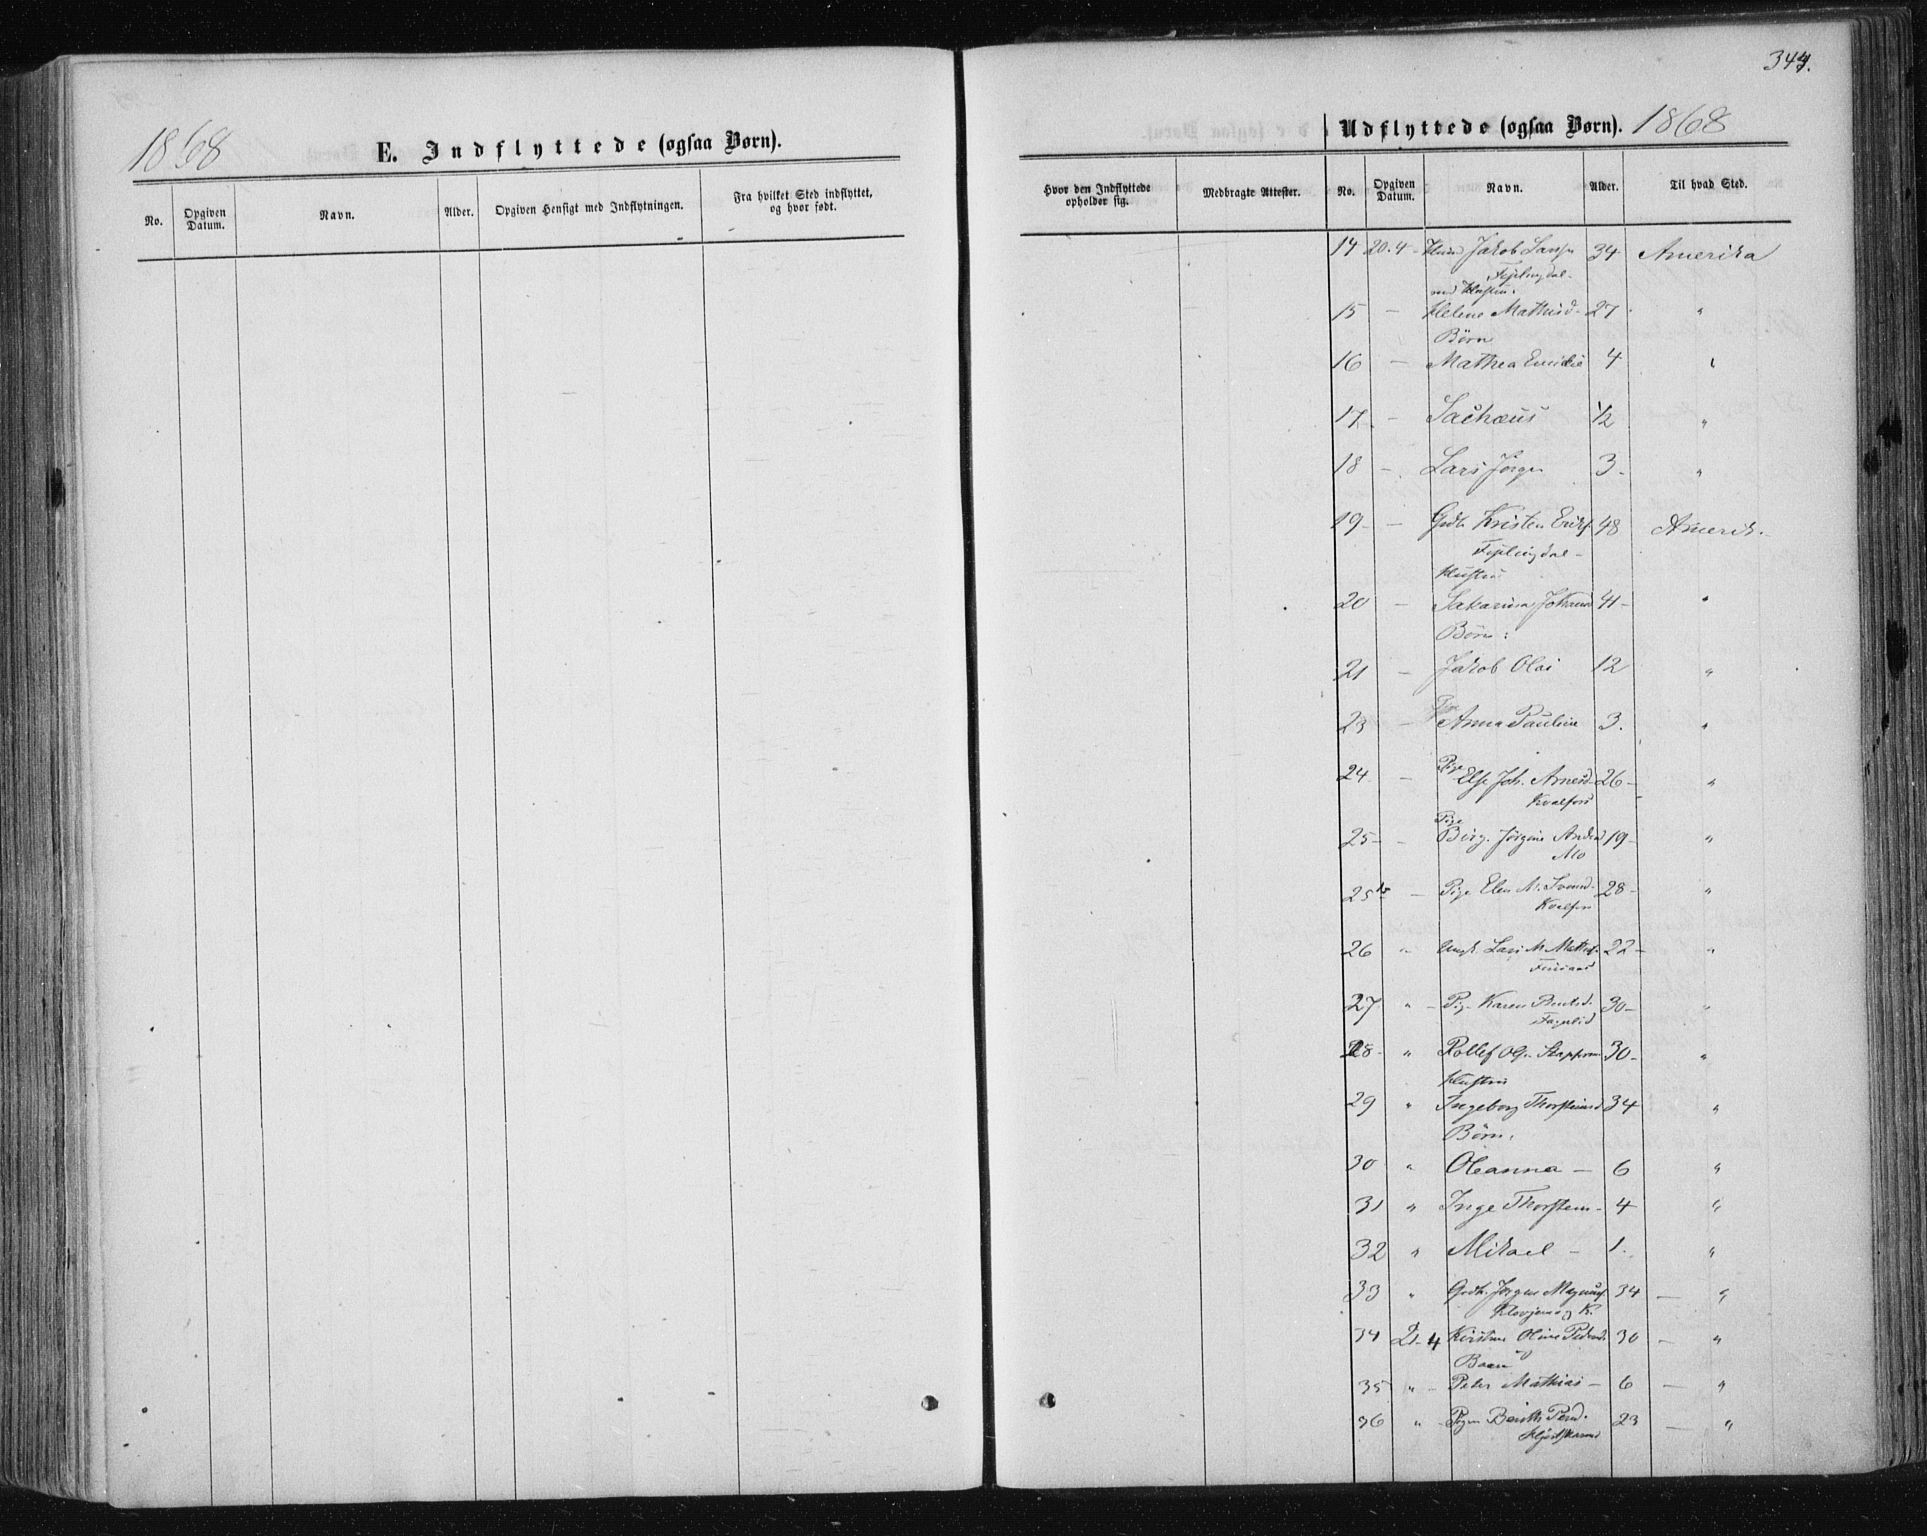 344.
1868
E. Indflyttede (ogsaa Børn).
No.
Opgiven Datum.
Navn.
Alder.
Opgiven Hensigt med Indflytningen.
Fra hvilket Sted indflyttet, og hvor født.
Hvor den Indflyttede opholder sig.
Medbragte Attester.
Udflyttede (ogsaa Børn). 1868
No.
Opgiven Datum.
Navn.
Alder.
Til hvad Sted.
14 20.4 - Jakob Larss 34 Amerika
Fiplingdal -
med Hustru:
15 - Helene Mathisd - 27 "
Børn
16 - Mathea Emilie 4 "
17. - Sachæus 1/2 "
18 - Lars Jørgen 3 - "
19 - - Kristen Eriks. 48 Amerik.
Fiplingdal -
Hustru
20 - Sakarina Johannd 41 - "
Børn:
21 - Jakob Olai 12 "
23 - Anna Pauline 3. "
24 - Pige Else Joh. Arnesd - 26 - "
Kvalfors
Pige
25 - - Berg. Jørgine Andersd 19 - "
Mo
25b - Pige Elen M. Svend - 28 - "
Kvalfors
26 " Ungk. Lars M. Mathis. 22 - "
27 " - Pig. Karen 30 - "
Fagerlid
28 - " Rollef Ols. 30 - "
Hustru
29 " Ingeborg Thorsteinsd 34 "
Børn.
30 " Oleanna - 6 "
31 " Inge Thorstein - 4 "
32 " Mikael - 1. "
33 " Jørgen Magnus. 34 - "
34 21-4 Kirstine Oline Pedersd. 30 - "
Baarn
35 " - Peter Mathias - 6 - "
36 " - Pigen Berith 23 - "